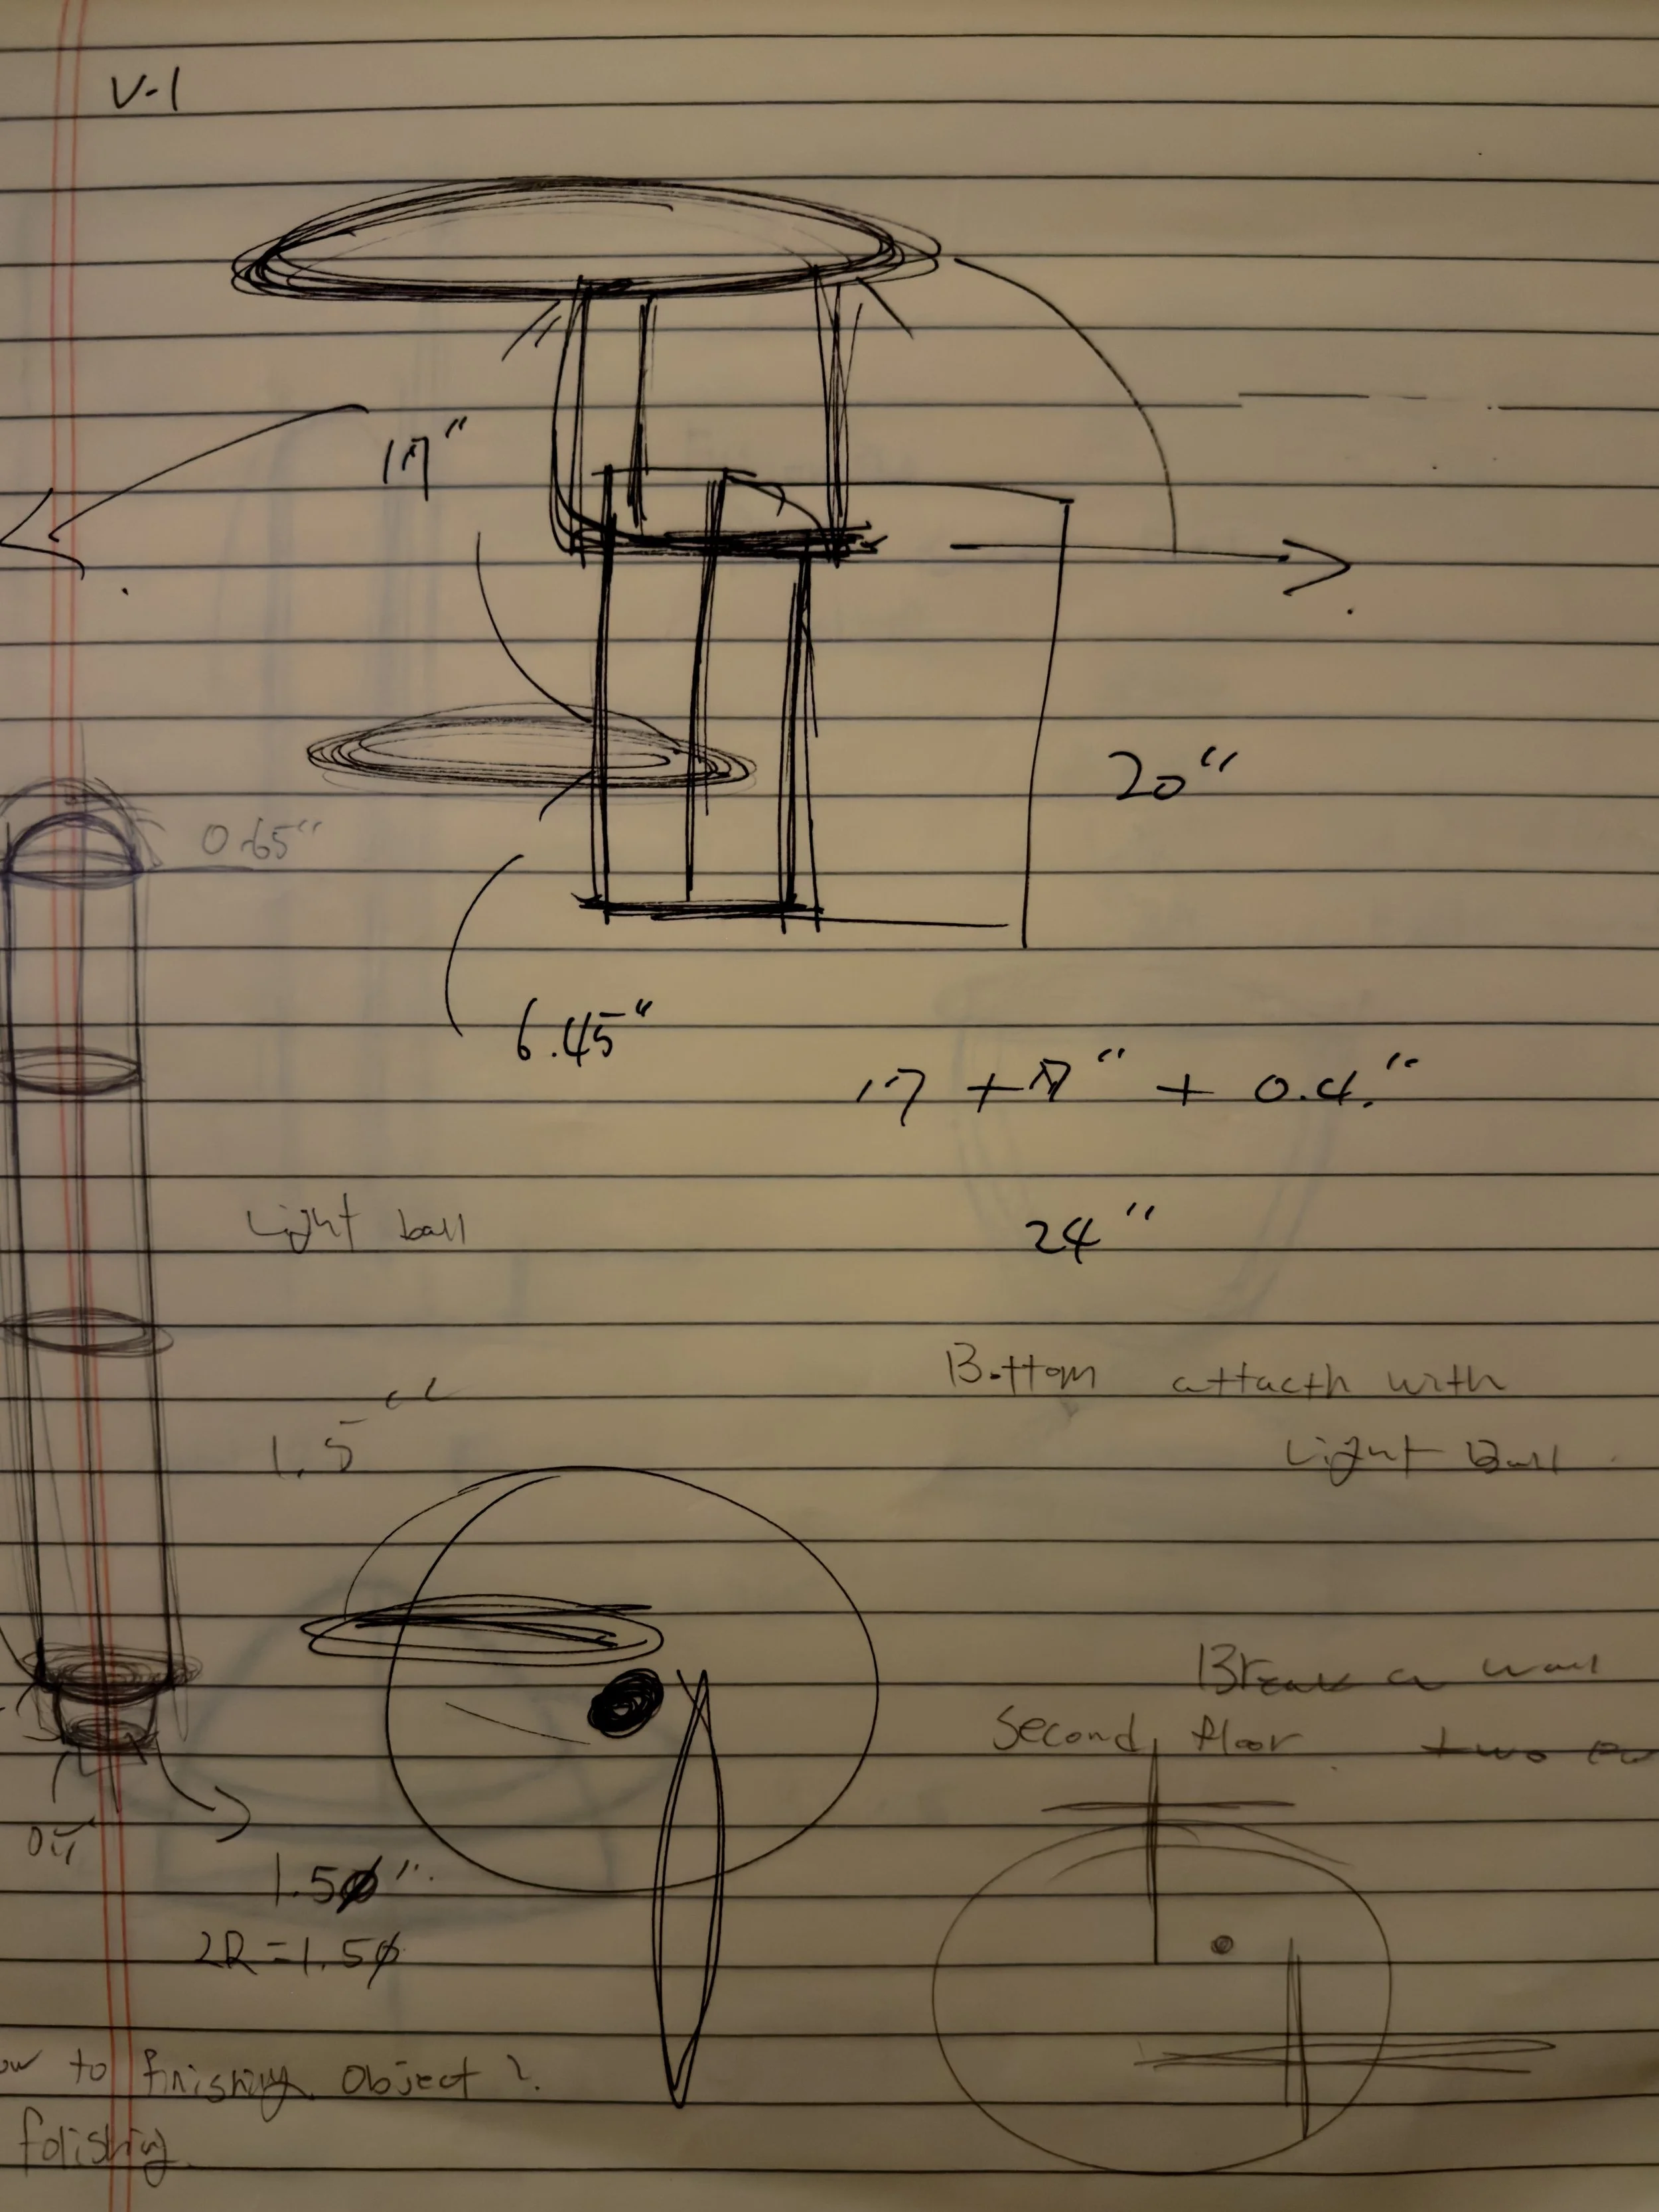 V-1
17"
20"
0.65"
6.45"
17 + 7" + 0.4."
Light ball
24"
Bottom attacth with
Light Ball
1.5"
Break a wall
Second floor. two
1.50".
2R = 1.50
to finishing object?
folishing